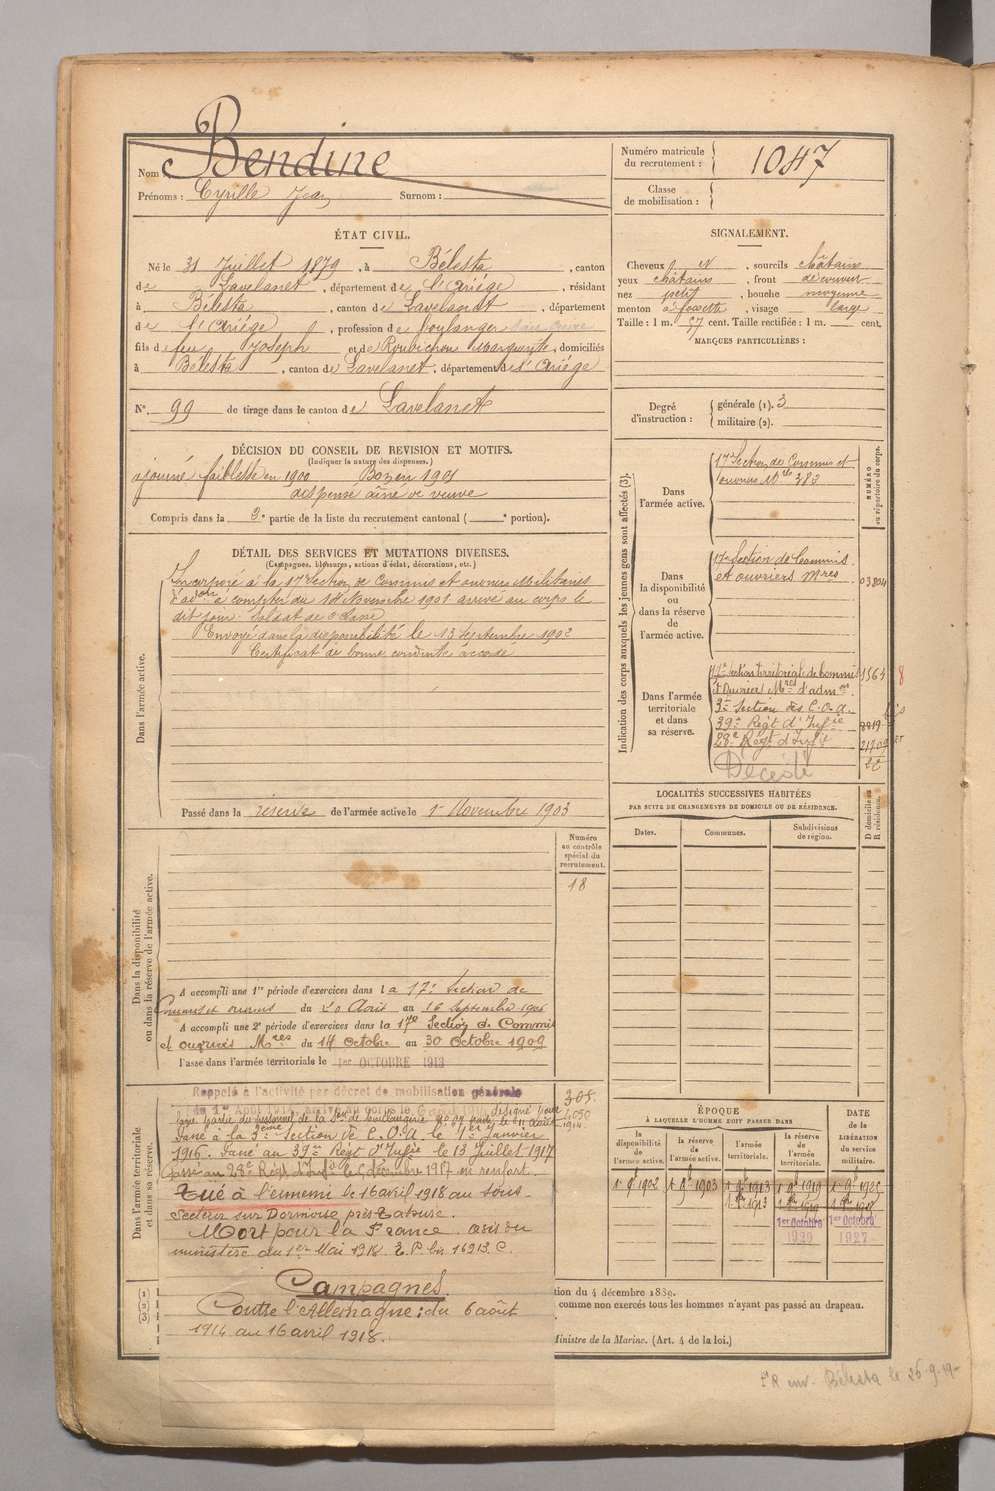 Nom Bendine
Prénoms : Cyrille Jean Surnom :
Numéro matricule du recrutement : 1047
Classe de mobilisation :
ÉTAT CIVIL.
Né le 31 Juillet 1879, à Bélesta, canton
de Lavelanet, département de l'Ariége, résidant
à Bélesta, canton de Lavelanet, département
de l'Ariége, profession de boulanger
fils de feu Joseph et de Roubichou Marguerite, domiciliés
à Bélesta, canton de Lavelanet, département de l'Ariége
N° 99 de tirage dans le canton de Lavelanet
SIGNALEMENT.
Cheveux N, sourcils châtains
yeux châtains, front découvert
nez petit, bouche moyenne
menton à fossette, visage large
Taille : 1 m. 57 cent. Taille rectifiée : 1 m. cent.
MARQUES PARTICULIÈRES :
Degré d'instruction : générale (1). 3
militaire (2).
DÉCISION DU CONSEIL DE REVISION ET MOTIFS.
(Indiquer la nature des dispenses.)
ajourné faiblesse en 1900 Bon en 1901
dispensé aîné de veuve
Compris dans la 3e partie de la liste du recrutement cantonal ( e portion).
DÉTAIL DES SERVICES ET MUTATIONS DIVERSES.
(Campagnes, blessures, actions d'éclat, décorations, etc.)
Dans l'armée active.
Incorporé à la 17e Section de Commis et ouvriers Militaires
d'adon à compter du 14 Novembre 1901 arrivé au corps le
dit jour. Soldat de 2e classe
Envoyé dans la disponibilité le 13 Septembre 1902
Certificat de bonne conduite accordé
Passé dans la réserve de l'armée active le 1er Novembre 1903
Indication des corps auxquels les jeunes gens sont affectés (3).
NUMÉRO au répertoire du corps.
Dans l'armée active.
17e Section de Commis et
ouvriers Mres 383
Dans la disponibilité ou dans la réserve de l'armée active.
17e Section de Commis
et ouvriers Mres 03804
Dans l'armée territoriale et dans sa réserve.
17e Section territoriale de Commis 1563 8
et Ouvriers Mres d'admon
3e Section des C.O.A.
39e Régt d'Infie 8819 bis
28e Régt d'Infie
Décédé
LOCALITÉS SUCCESSIVES HABITÉES
PAR SUITE DE CHANGEMENTS DE DOMICILE OU DE RÉSIDENCE.
Dates. Communes. Subdivisions de région. D domicile ou R résidence.
Dans la disponibilité ou dans la réserve de l'armée active.
Numéro au contrôle spécial du recrutement.
18
A accompli une 1re période d'exercices dans la 17e Section de
Commis et ouvriers du 20 Août au 16 Septembre 1906
A accompli une 2e période d'exercices dans la 17e Section de Commis
et ouvriers Mres du 14 Octobre au 30 Octobre 1909
Passé dans l'armée territoriale le 1er OCTOBRE 1913
Dans l'armée territoriale et dans sa réserve.
Rappelé à l'activité par décret de mobilisation générale
du 1er Août 1914, arrivé au corps le 6 août 1914 désigné pour
faire partie du personnel de la Son de boulangerie le 11 août 1914.
Passé à la 3eme Section de C.O.A. le 1er Janvier
1916. Passé au 39e Régt d'Infie le 13 juillet 1917
passé au 28e Régt d'Infie le 6 décembre 1917 en renfort.
Tué à l'ennemi le 16 avril 1918 au sous-
secteur sur Dormoise près Tahure.
Mort pour la France. avis du
ministère du 1er Mai 1918. E.P. bis 16913. C.
Campagnes.
Contre l'Allemagne : du 6 août
1914 au 16 avril 1918.
ÉPOQUE À LAQUELLE L'HOMME DOIT PASSER DANS
la disponibilité de l'armée active. la réserve de l'armée active. l'armée territoriale. la réserve de l'armée territoriale. DATE DE LA LIBÉRATION du service militaire.
1er 9bre 1902 1er 9bre 1903 1er 9bre 1913 1er 9bre 1919 1er 9bre 1925
1er Octobre 1920 1er Octobre 1927
tion du 4 décembre 1889.
comme non exercés tous les hommes n'ayant pas passé au drapeau.
Ministre de la Marine. (Art. 4 de la loi.)
env. Bélesta le 26-9-19-